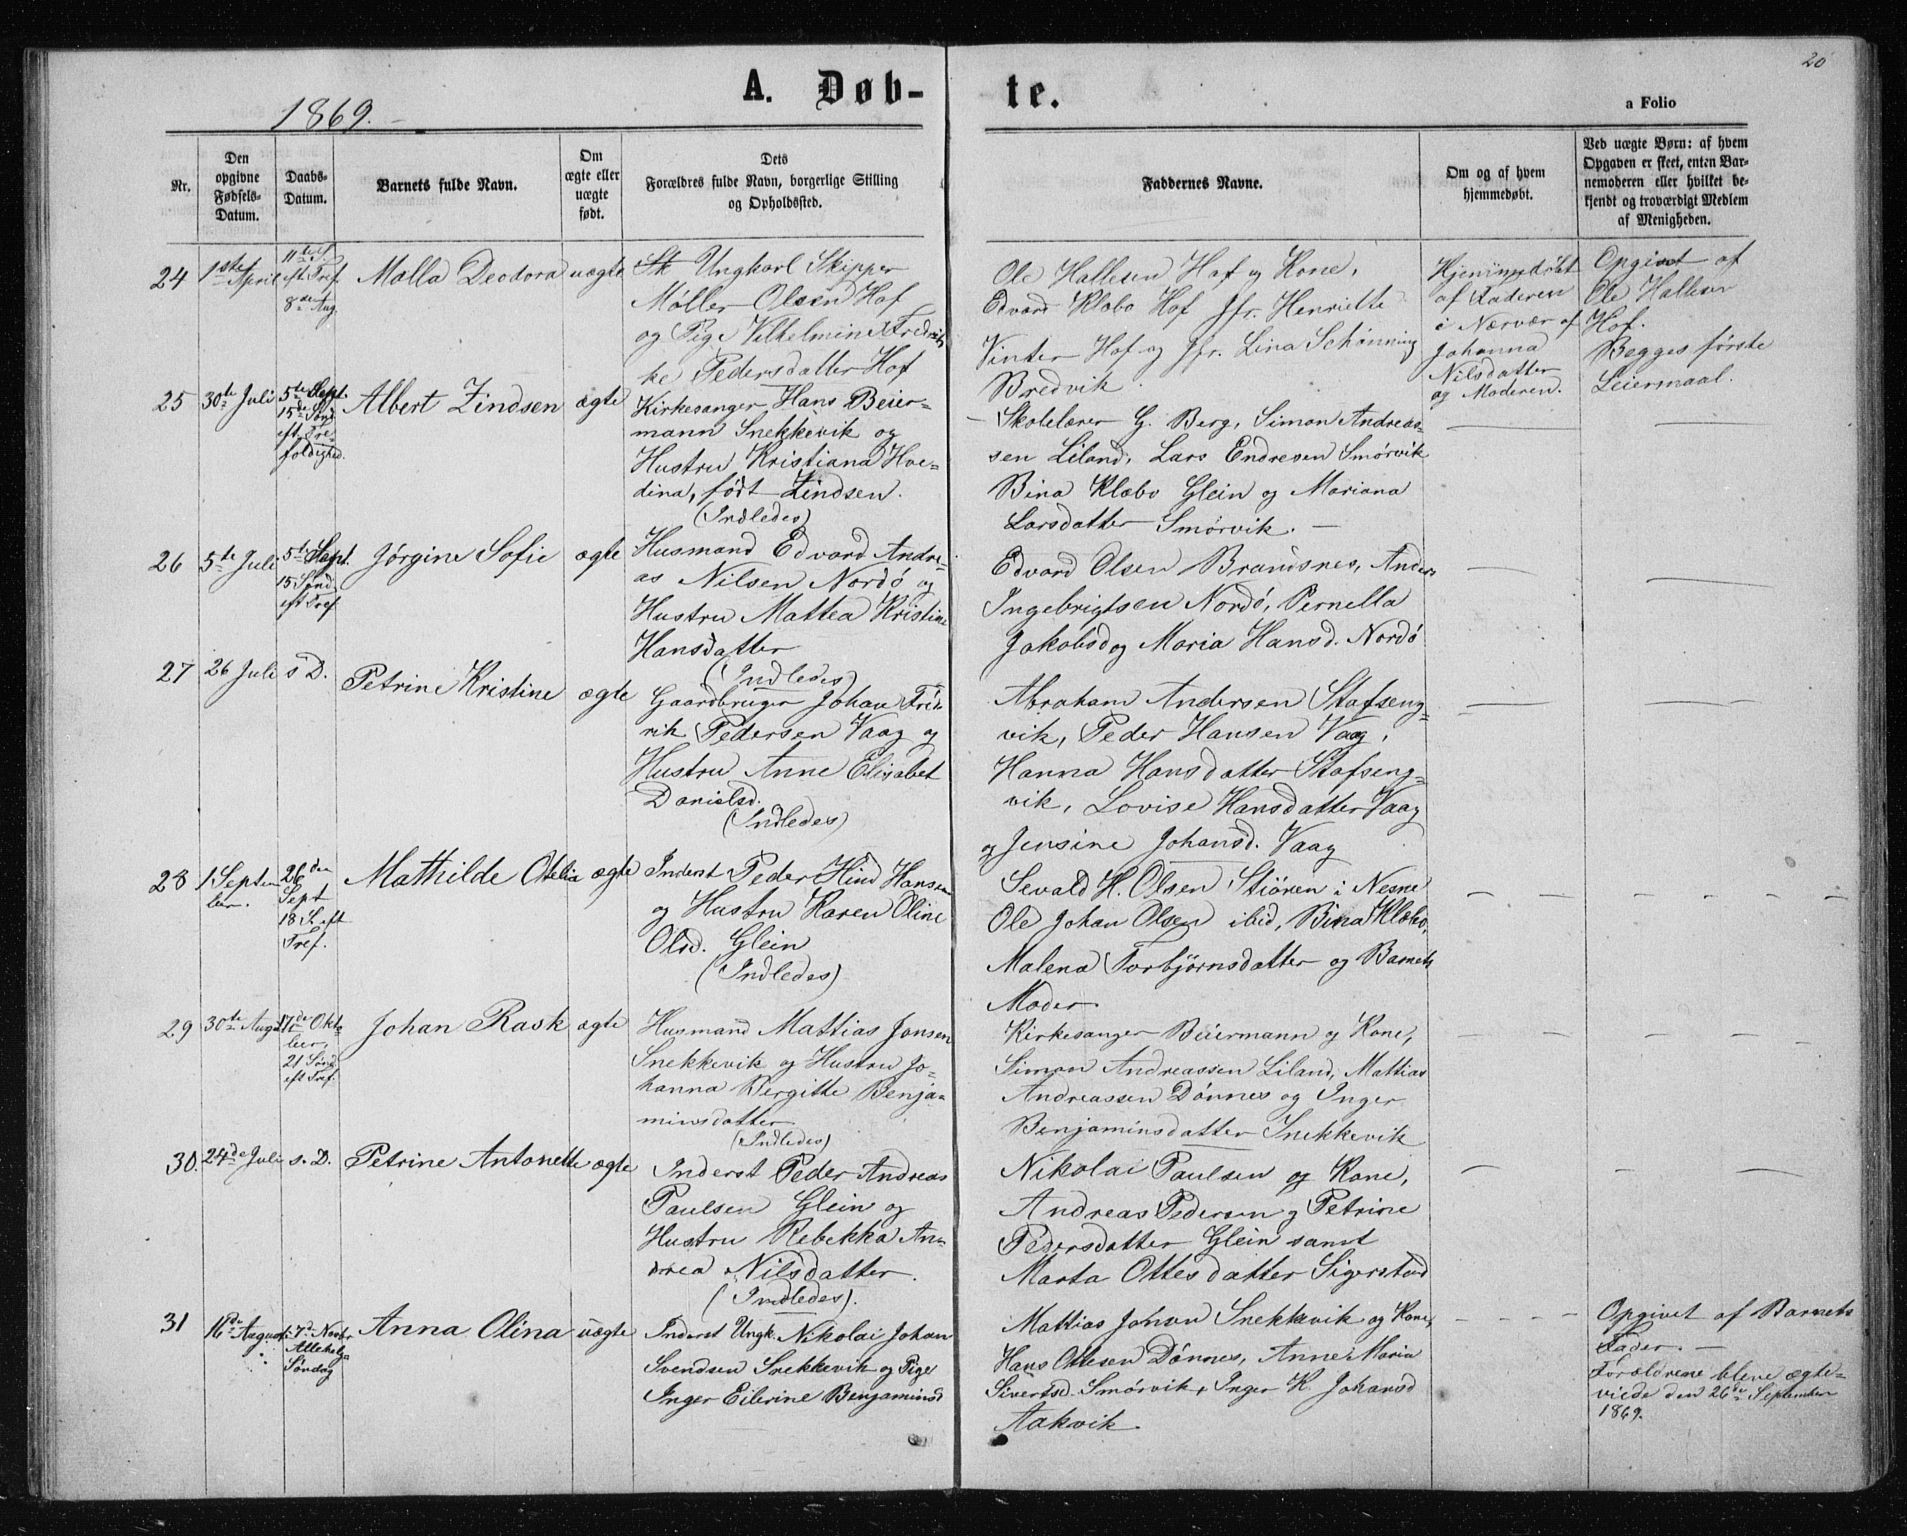 20
1869.
A. Døb-
te.
a Folio
Nr.
Den
opgivne
Fødsels-
Datum.
Daabs-
Datum.
Barnets fulde Navn.
Om
ægte eller
uægte
født.
Dets
Forældres fulde Navn, borgerlige Stilling
og Opholdssted.
Faddernes Navne.
Om og af hvem
hjemmedøbt.
Ved uægte Børn: af hvem
Opgaven er skeet, enten Bar-
nemoderen eller hvilket be-
kjendt og troværdigt Medlem
af Menigheden.
24
1ste April
11te S.
eft Tref
8de Aug.
Malla Deodora
uægte
Ungkarl Skipper
Møller Olsen Hof
og Pige Vilhelmine Fredrik-
ke Pedersdatter Hof
Ole Hallesen Hof og Kone,
Edvard Klæbo Hof Jfr. Henriette
Vinter Hof og Jfr. Lina Schønning
Bredvik.
Hjemmedøbt
af Faderen
i Nærvær af
Johanna
Nilsdatter
og Moderen.
Opgivet af
Ole Hallesen
Hof.
Begges første
Leiermaal.
25
30te Juli
5te Sept.
15de Sønd
eft Tre-
foldighed.
Albert Zindsen
ægte
Kirkesanger Hans Beier-
mann Snekkevik og
Hustru Kristiana Hve-
dina, født Zindsen.
(Indledes)
Skolelærer G. Berg, Simon Andreas-
sen Liland, Lars Endresen Smørvik
Bina Klæbo Glein og Mariana
Larsdatter Smørvik. —
26
5te Juli
5te Sept.
15 Sønd
eft Tref
Jørgine Sofie
ægte
Husmand Edvard Andre-
as Nilsen Nordø og
Hustru Mattea Kristine
Hansdatter
(Indledes)
Edvard Olsen Brandsnes, Anders
Ingebrigtsen Nordø, Pernella
Jakobsd og Maria Hansd. Nordø
27
26 Juli
s D.
Petrine Kristine
ægte
Gaardbruger Johan Fred-
rik Pedersen Vaag og
Hustru Anne Elisabet
Danielsd.
(Indledes)
Abraham Andersen Stafseng-
vik, Peder Hansen Vaag,
Hanna Hansdatter Stafseng-
vik, Lovise Hansdatter Vaag
og Jensine Johansd. Vaag
28
1 Septem
ber.
26den
Sept
18 S. eft
Tref.
Mathilde Otelia
ægte
Inderst Peder Hind Hansen
og Hustru Karen Oline
Olsd. Glein
(Indledes)
Sevald H. Olsen Stiören i Nesne
Ole Johan Olsen ibid, Bina Klæbo,
Malena Torbjørnsdatter og Barnets
Moder
29
30te Aug
17de Okto
ber,
21 Sønd
eft Tref.
Johan Rask
ægte
Husmand Mattias Jonsen
Snekkevik og Hustru Jo-
hanna Bergitte Benja-
minsdatter
(Indledes)
Kirkesanger Beiermann og Kone,
Simon Andreassen Liland, Mattias
Andreassen Dønnes og Inger
Benjaminsdatter Snekkevik
30.
24de Juli
s. D.
Petrine Antonette
ægte
Inderst Peder Andreas
Paulsen Glein og
Hustru Rebekka An-
drea Nilsdatter.
(Indledes).
Nikolai Paulsen og Kone,
Andreas Pedersen og Petrine
Pedersdatter Glein samt
Marta Ottesdatter Sigerstad
31
16de August
7de Novbr
Allehelg
Søndag
Anna Olina
uægte
Inderst Ungk. Nikolai Johan
Svendsen Snekkevik og Pige
Inger Eilerine Benjaminsd
Mattias Johan Snekkevik og Kone,
Hans Ottesen Dønnes, Anne Maria
Sivertsd. Smørvik, Inger K. Johansd
Aakvik.
Opgivet af Barnets
Fader. —
Forældrene bleve ægte-
viede den 26de September
1869.